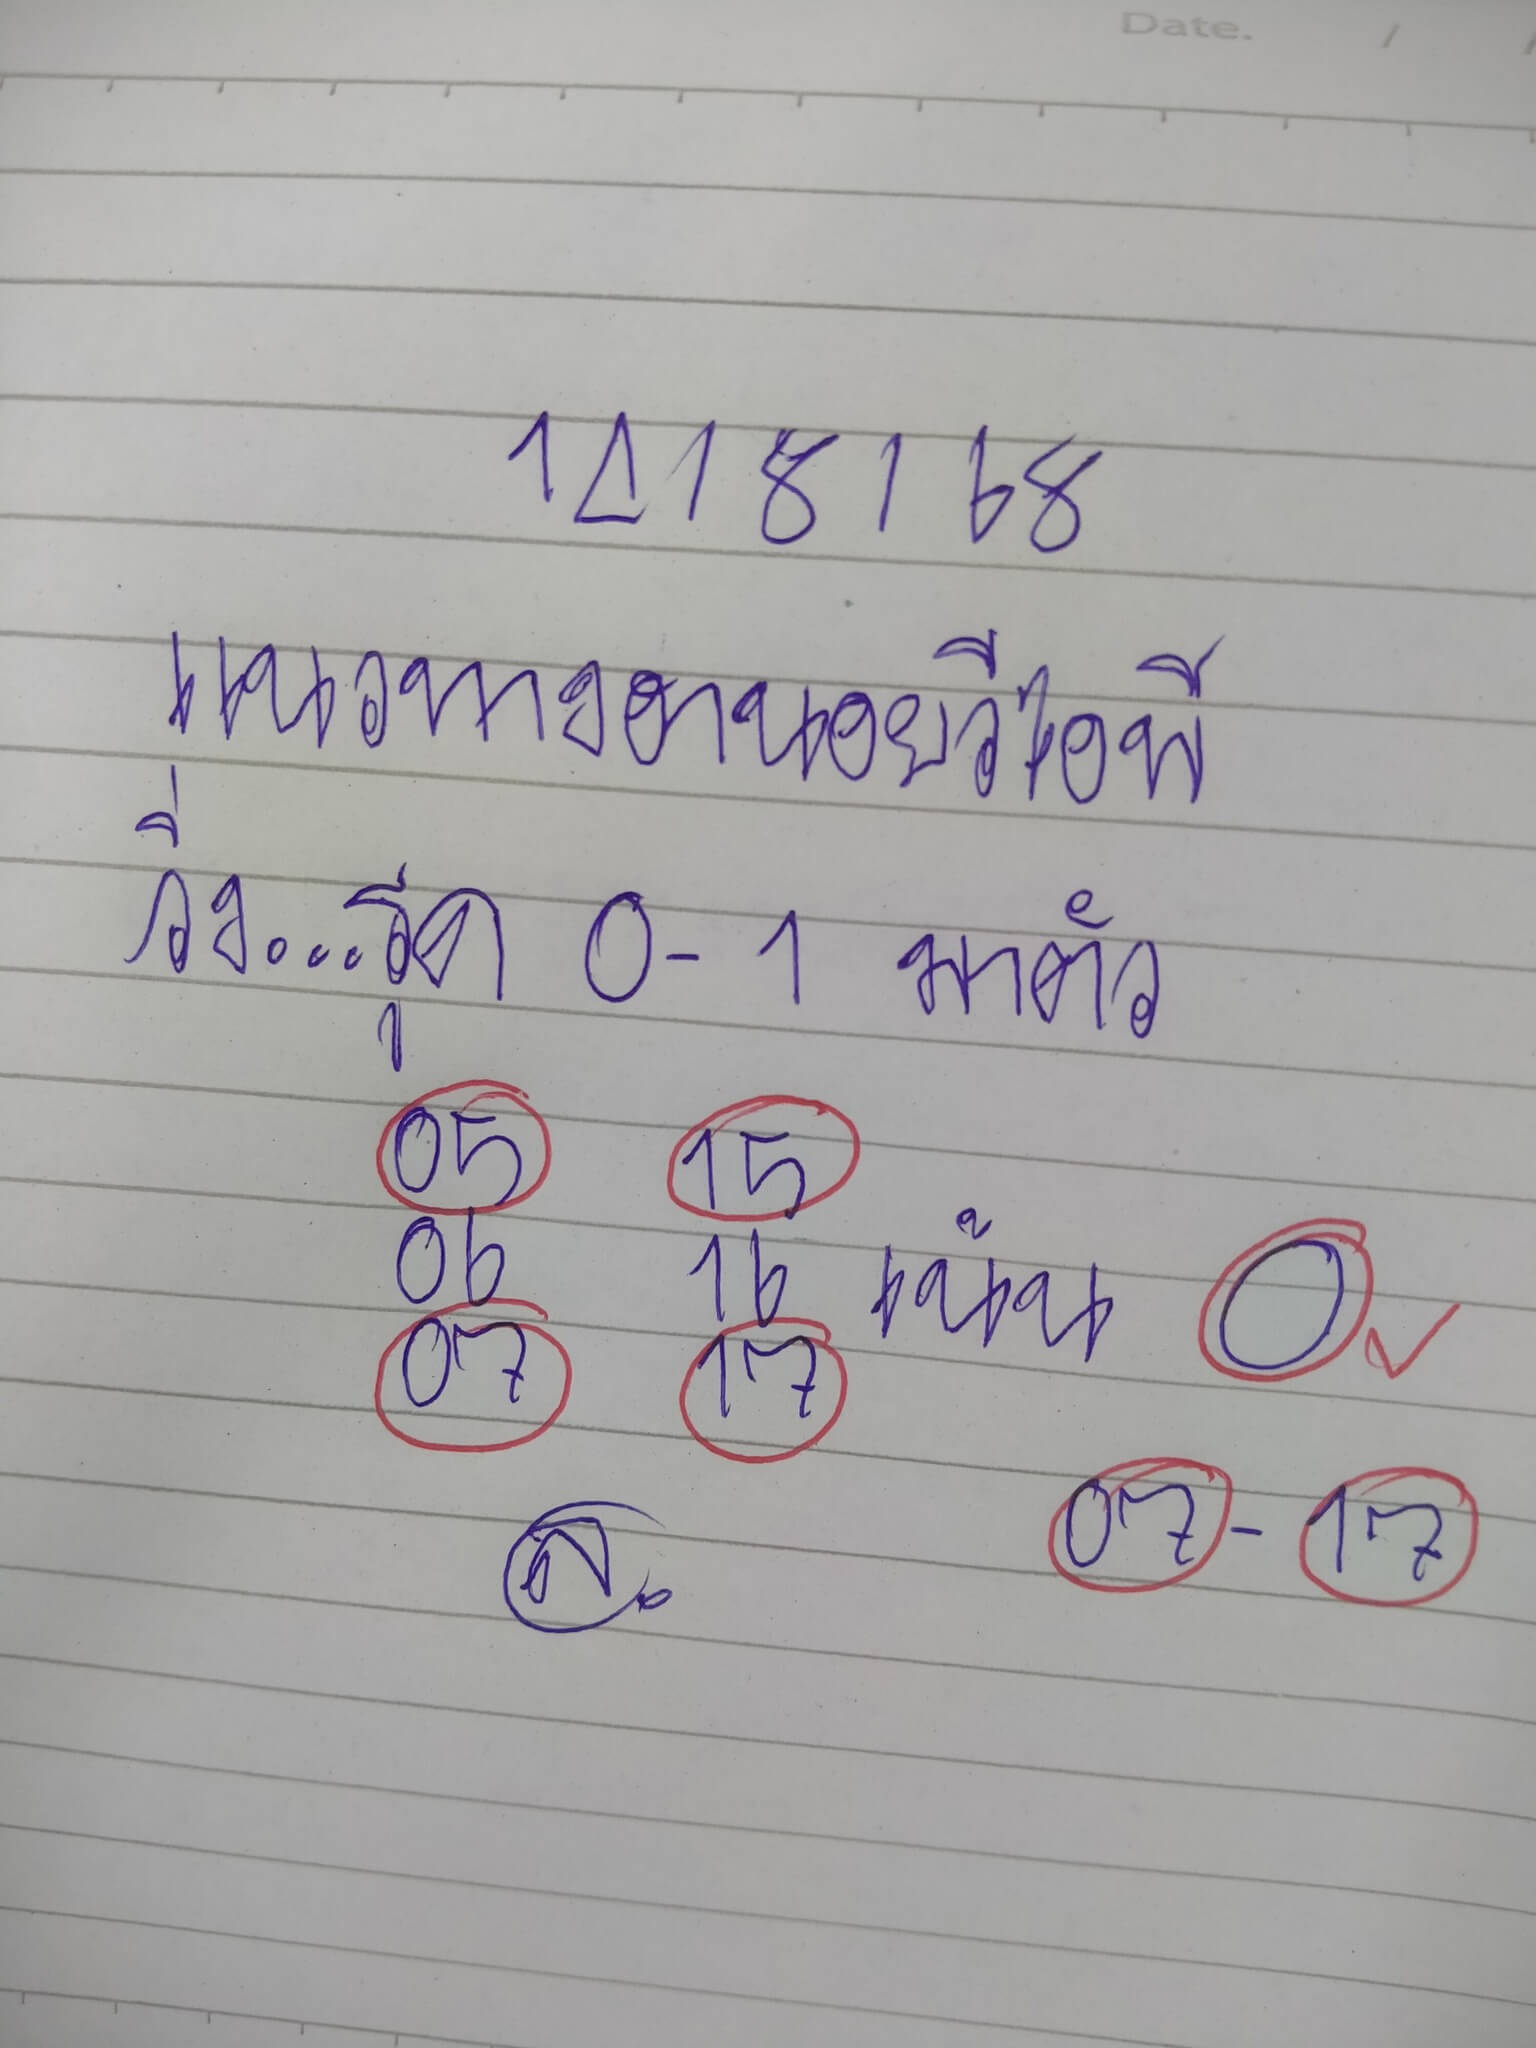 Date. / /
12/8/68
แนวทางฮานอยวีไอพี
วิ่ง...รูด 0-1 มาตัว
05 15
06 16 เน้น 0✓
07 17
07-17
ส.